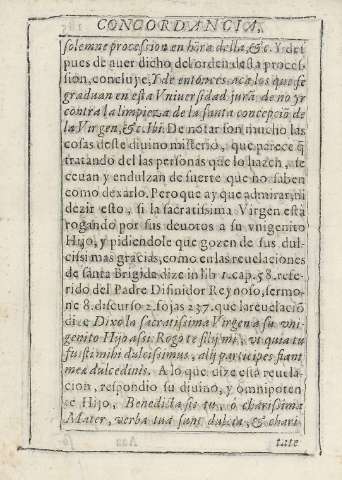 CONCORDANCIA.
solemne procession en hõra della, &c. Y des
pues de auer dicho del orden desta proces
sion, concluye, Y de entonces aca los que se
graduan en esta Vniuersidad jurã de no yr
contra la limpieza de la santa concepciõ de
la Virgen, &c. Ibi. De notar son mucho las
cosas deste diuino misterio, que parece q̃
tratando dellas las personas que lo hazen, se
ceuan y endulzan de suerte que no saben
como dexarlo. Pero que ay que admirar, ni
dezir esto, si la sacratissima Virgen està
rogando por sus deuotos a su vnigenito
Hijo, y pidiendole que gozen de sus dul-
cissimas gracias, como en las reuelaciones
de santa Brigida dize in lib 1. cap. 58. refe-
rido del Padre Difinidor Reynoso, sermo-
ne 8. discurso 2. fojas 237. que la reuelaciõ
dize Dixo la sacratissima Virgen a su vni-
genito Hijo assi. Rogo te fili mi, vt quia tu
fuisti mihi dulcissimus, alij participes fiant
meæ dulcedinis. A lo que dize esta reuela-
cion, respondio su diuino, y omnipoten
te Hijo, Benedicta sis tu, ò charissima
Mater, verba tua sunt dulcia, & chari
tate